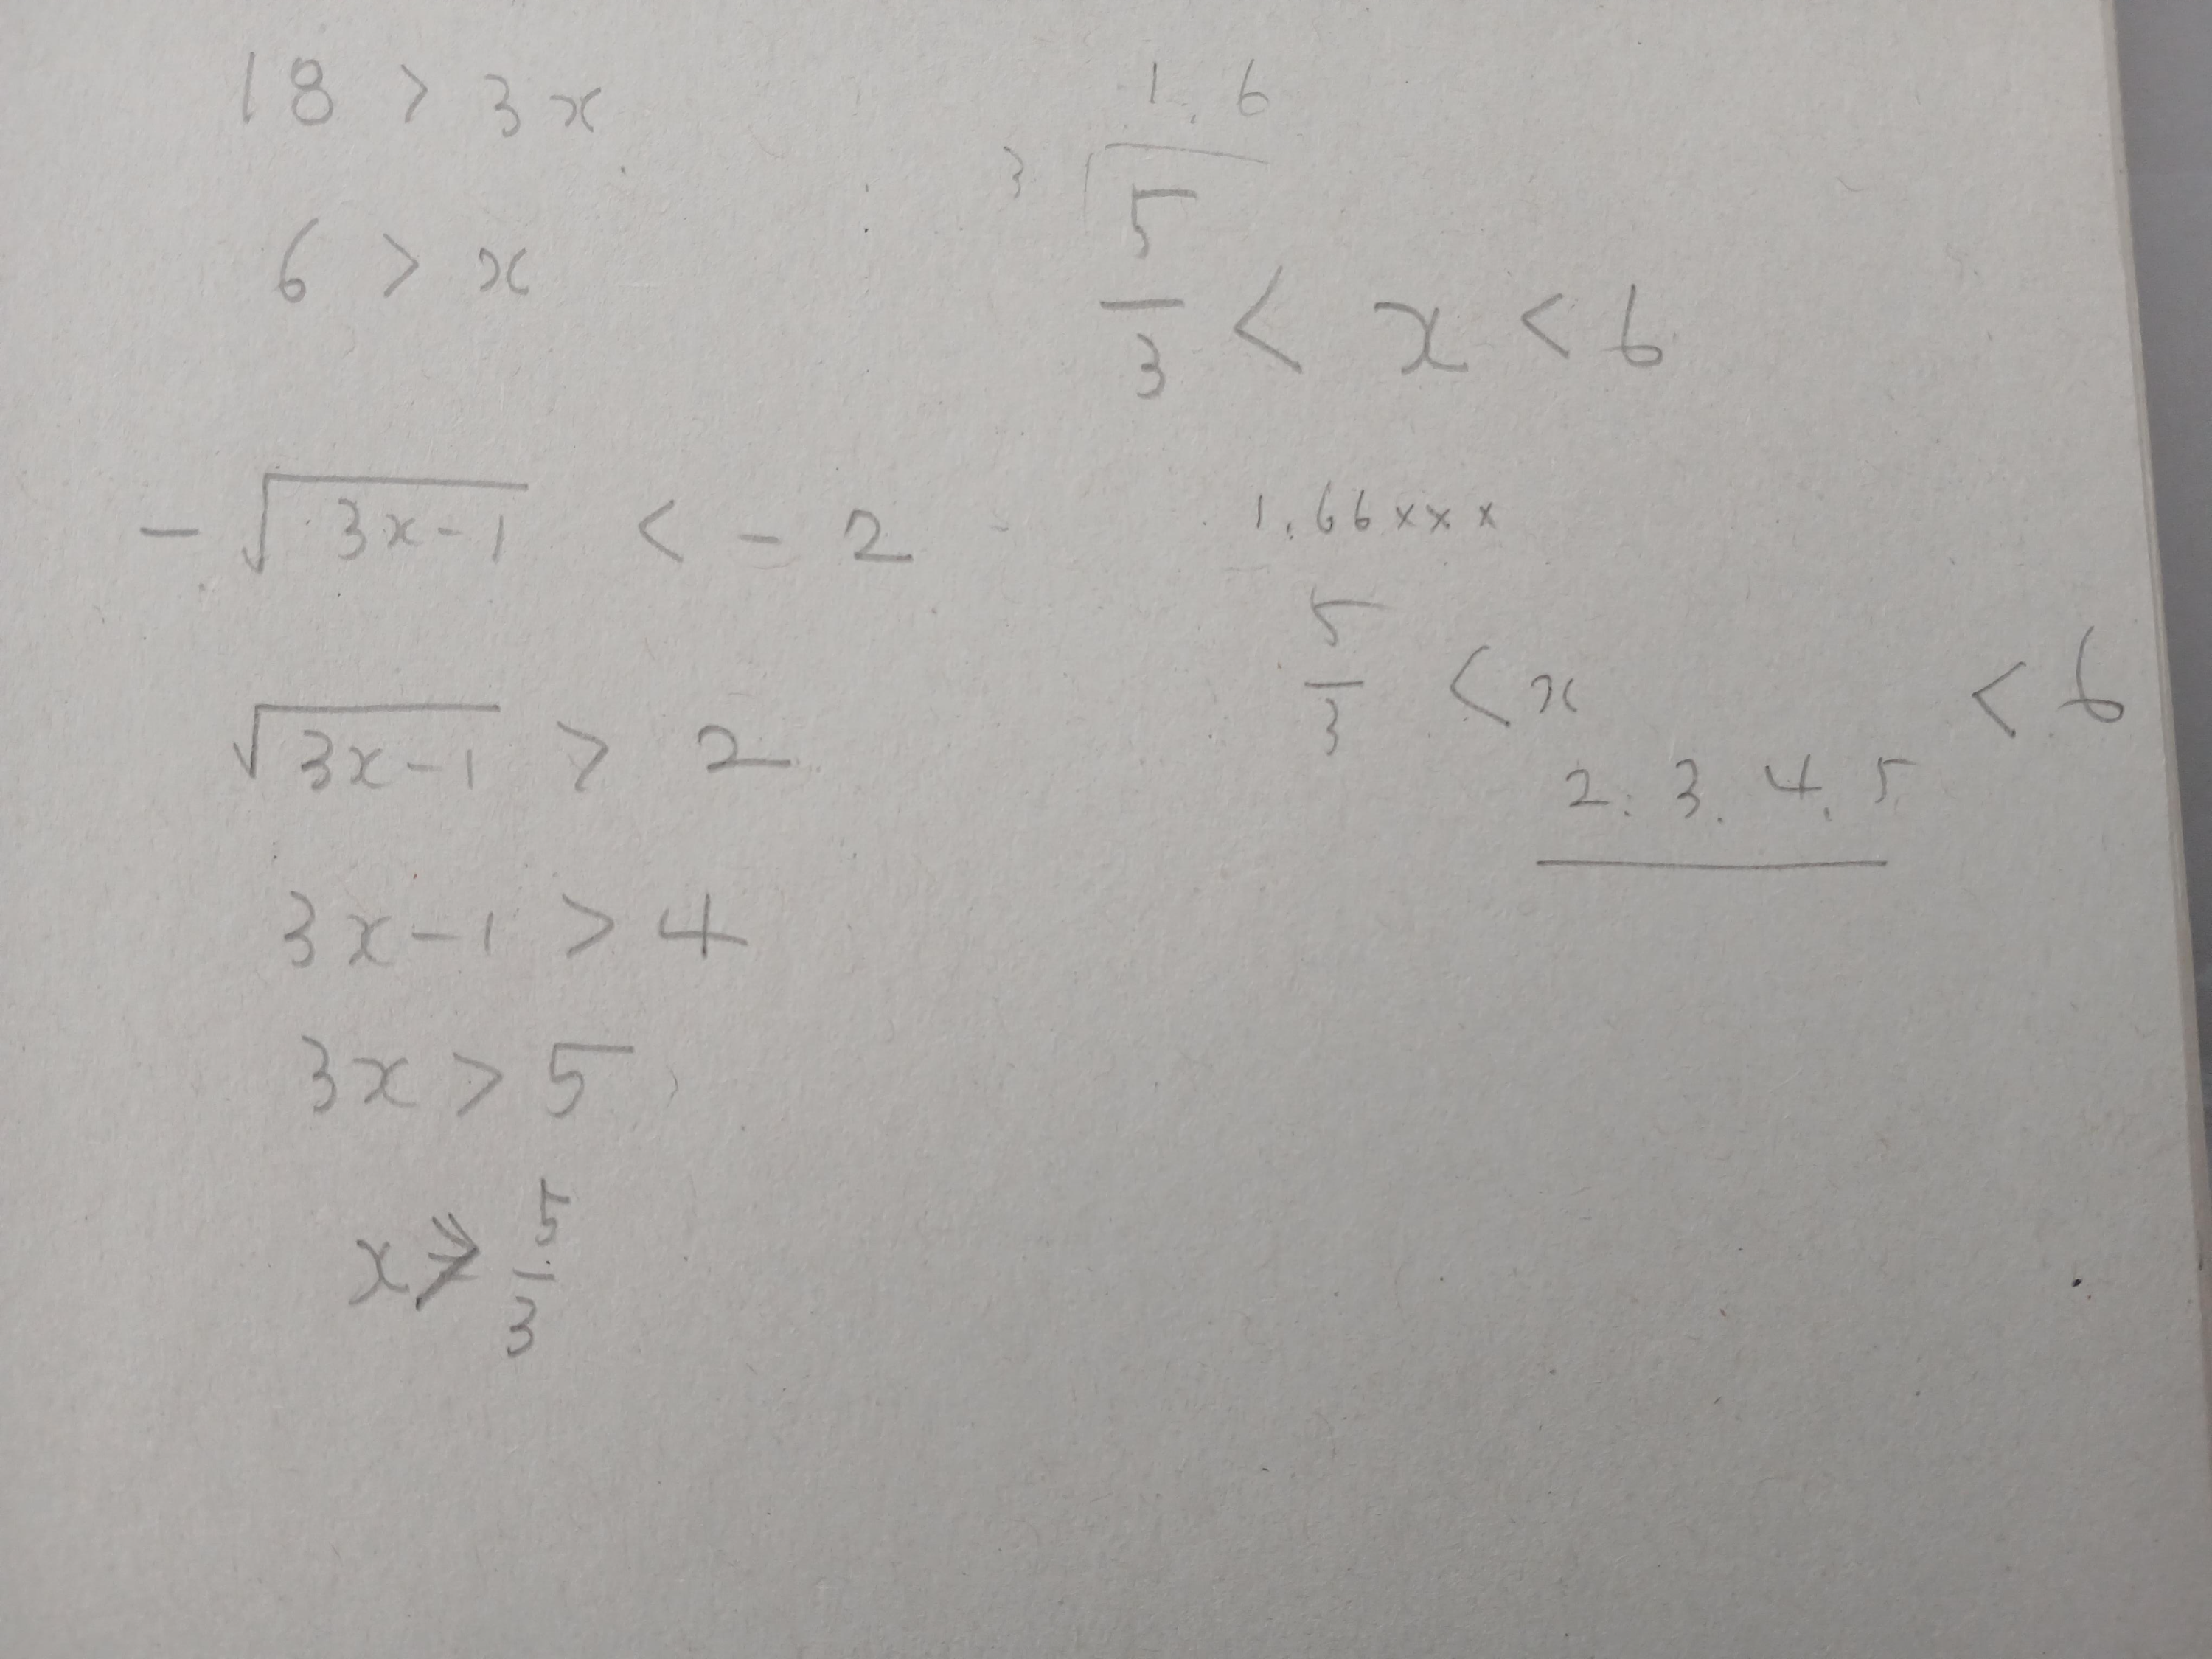 18 > 3x
6 > x
-√(3x-1) < -2
√(3x-1) > 2
3x-1 > 4
3x > 5
x > 5/3
1.6
3 5
5/3 < x < 6
1.66xxx
5/3 < x < 6
2. 3. 4. 5